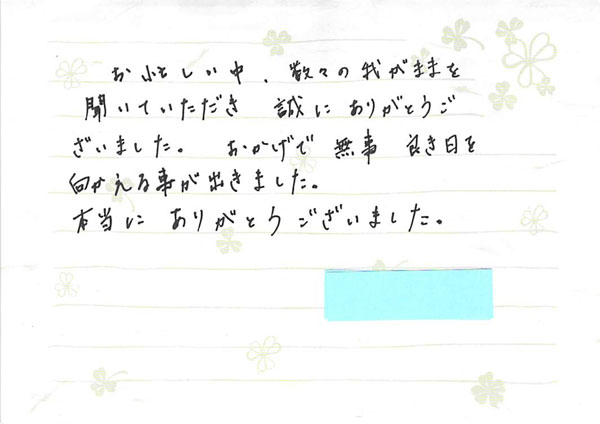 お忙しい中、数々の我がままを
聞いていただき 誠に ありがとうご
ざいました。 おかげで 無事 良き日を
向かえる事が出きました。
本当に ありがとうございました。